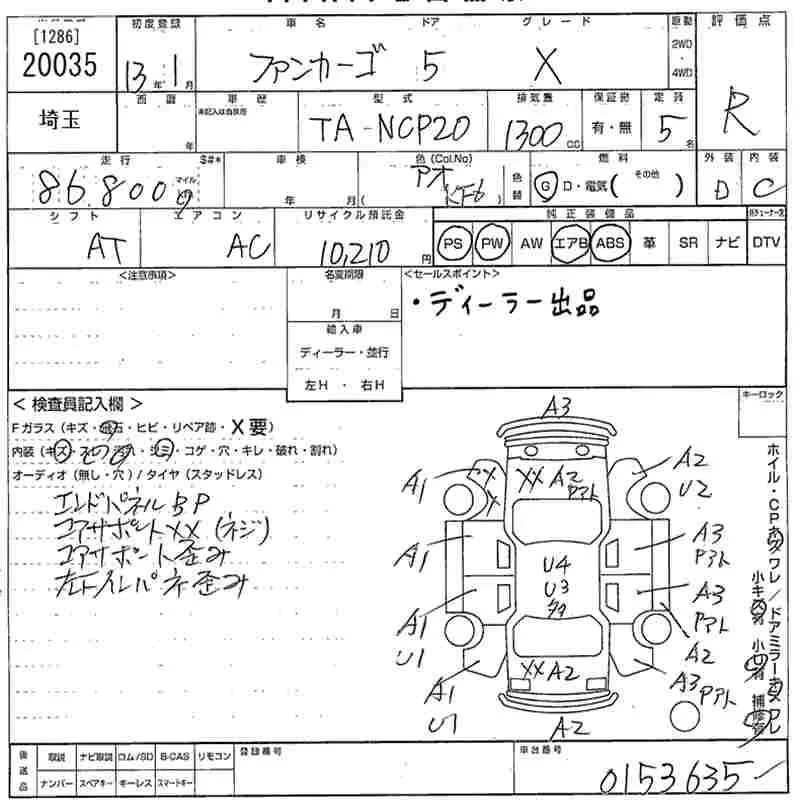 [1286]
20035
初度登録
13年1月
車名
ファンカーゴ
ドア
5
グレード
X
駆動
2WD
・
4WD
評価点
R
埼玉
年
車歴
未記入は自家用
型式
TA-NCP20
排気量
1300cc
保証書
有・無
定員
5名
走行
$#*
86,800
マイル
km
車検
年 月(
色(Col.No)
アオ
)
色替
燃料
G D・電気( その他 )
外装
D
内装
C
シフト
AT
エアコン
AC
リサイクル預託金
10,210円
純正装備品
PS PW AW エアB ABS 革 SR ナビ
DTV
<注意事項>
名変期限
月 日
輸入車
ディーラー・並行
左H ・ 右H
<セールスポイント>
・ディーラー出品
キーロック
< 検査員記入欄 >
Fガラス(キズ・飛石・ヒビ・リペア跡・X要)
内装(キズ・スレ・汚れ・シミ・コゲ・穴・キレ・破れ・割れ)
オーディオ(無し・穴)/タイヤ(スタッドレス)
エンドパネルBP
コアサポートXX(ネジ)
コアサポート歪み
A3
XX
A2
Pアト
XX
A1
A2
U2
A1
A3
Pアト
U4
U3
A1
U1
A3
Pアト
A2
A1
U1
XX A2
A3 Pアト
A2
後送品
取説 ナビ取説 ロム/SD B-CAS リモコン
ナンバー スペアキー キーレス スマートキー
登録番号
車台番号
0153635